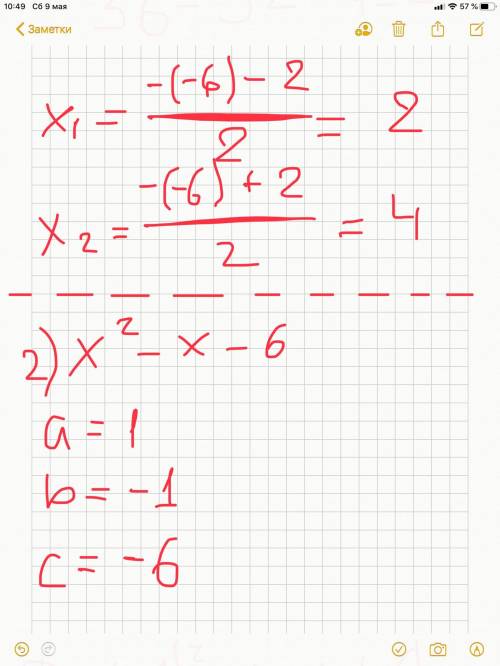 10:49 Сб 9 мая 57 %
Заметки
x₁ = (-(-6) - 2)/2 = 2
x₂ = (-(-6) + 2)/2 = 4
2) x² - x - 6
a = 1
b = -1
c = -6